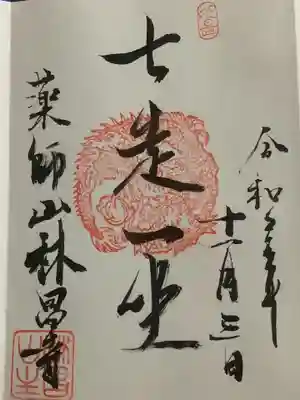 令和元年
十一月三日
七走一坐
薬師山林昌寺